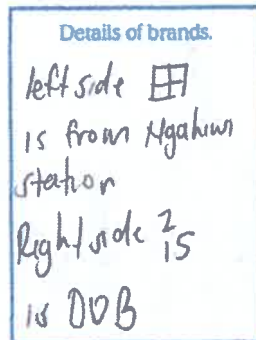 Details of brands.
left side 田
is from Ngahiwi
station
Right side 2
15
is DOB